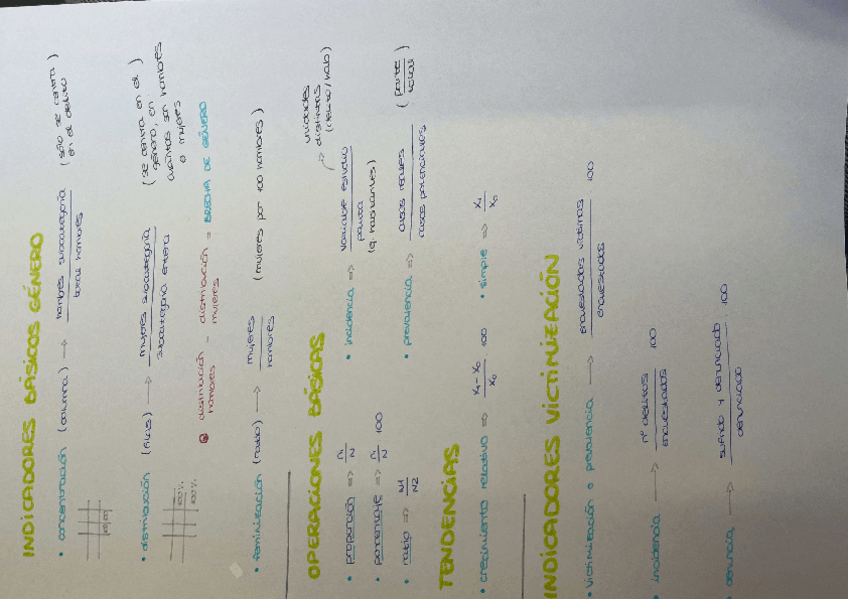 INDICADORES BÁSICOS GÉNERO
• concentración (columna) → hombres subcategoría / total hombres (sólo se centra en el delito)
• distribución (filas) → mujeres subcategoría / subcategoría entera (se centra en el género, en cuántos son hombres o mujeres
100%
100%
distribución hombres - distribución mujeres = BRECHA DE GÉNERO
• feminización (ratio) → mujeres / hombres (mujeres por 100 hombres)
OPERACIONES BÁSICAS
• proporción => n / N
• porcentaje => n / N · 100
• ratio => N1 / N2
• incidencia => variable estudio / pauta (q. habitantes)
→ unidades distintas (delito/hab)
• prevalencia => casos reales / casos potenciales (parte / total)
TENDENCIAS
• crecimiento relativo => X1 - X0 / X0 · 100
• simple => X1 / X0
INDICADORES VICTIMIZACIÓN
• victimización o prevalencia → encuestados víctimas / encuestados · 100
• incidencia → nº delitos / encuestados · 100
• denuncia → sufrido y denunciado / denunciado · 100